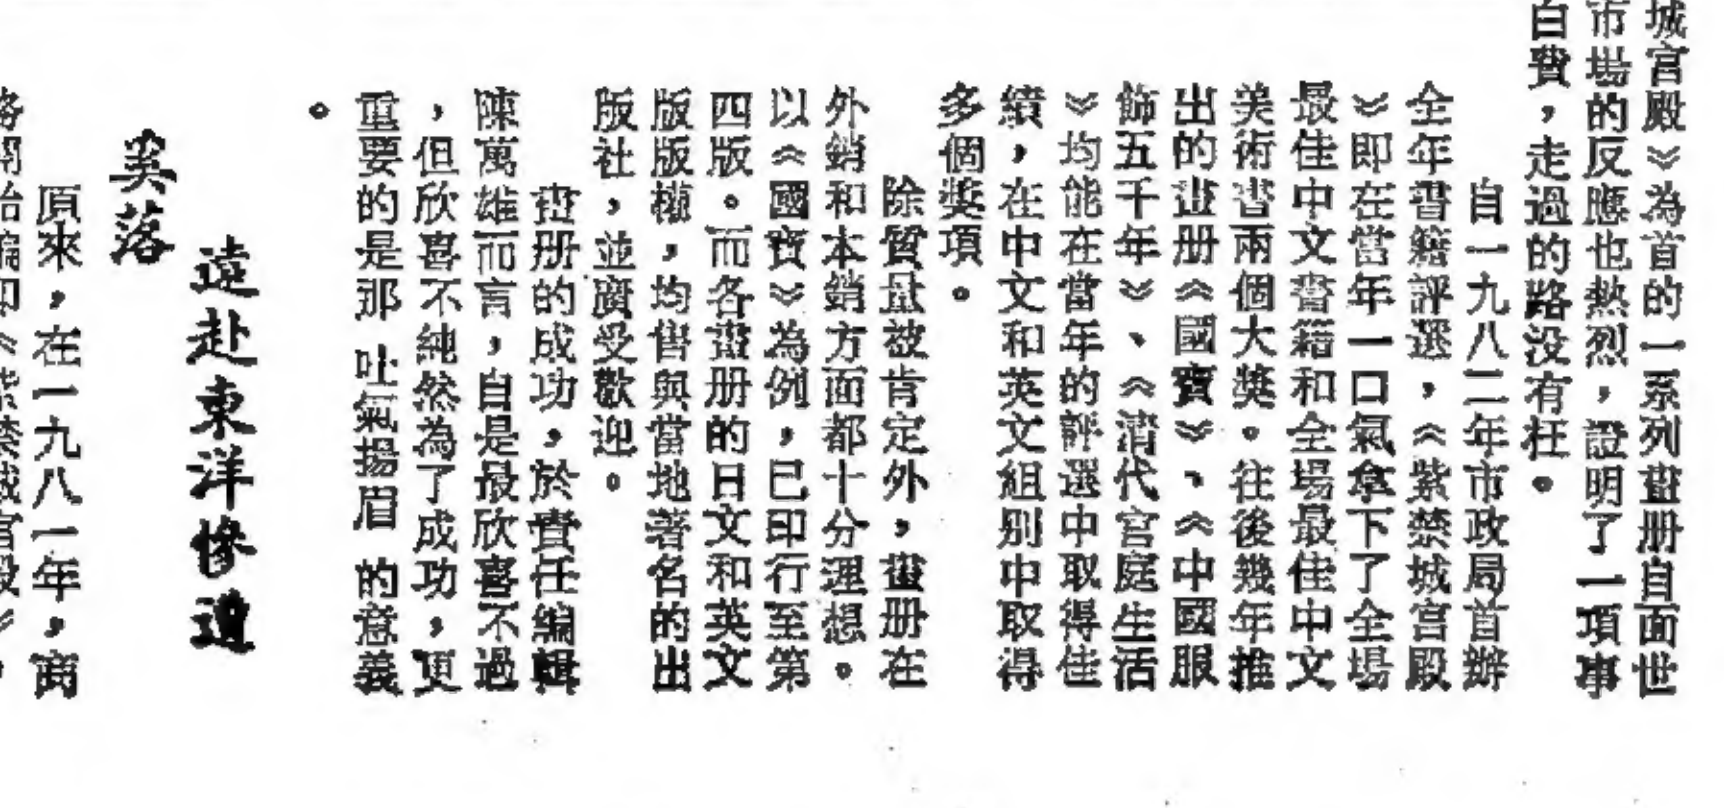 城宮殿》為首的一系列畫册自面世
市場的反應也熱烈，證明了一項事
白費，走過的路没有枉。
自一九八二年市政局首辦
全年書籍評選，《紫禁城宮殿
》即在當年一口氣拿下了全場
最佳中文書籍和全場最佳中文
美術書兩個大獎。往後幾年推
出的畫册《國寶》、《中國服
飾五千年》、《清代宮庭生活
》均能在當年的評選中取得佳
績，在中文和英文組别中取得
多個獎項。
除質量被肯定外，畫册在
外銷和本銷方面都十分理想。
以《國寶》為例，已印行至第
四版。而各畫册的日文和英文
版版權，均售與當地著名的出
版社，並廣受歡迎。
畫册的成功，於責任編輯
陳萬雄而言，自是最欣喜不過
，但欣喜不純然為了成功，更
重要的是那 吐氣揚眉 的意義
。
遠赴東洋慘遭
奚落
原來，在一九八一年，商
開始編印《紫禁城宮殿》，